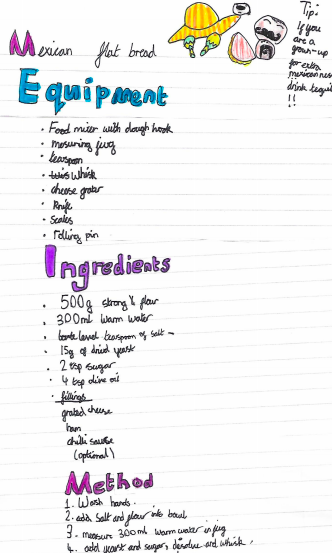 Tip:
If you
are a
grown-up
for extra
mexicanness
drink tequil
!!
Mexican flat bread
Equipment
• Food mixer with dough hook
• mesuring jug
• teaspoon
• whisk
• cheese grater
• Knife
• Scales
• rolling pin
Ingredients
• 500g strong flour
• 300ml warm water
• level teaspoon of salt
• 15g of dried yeast
• 2 tsp sugar
• 4 tsp olive oil
• fillings
grated cheese
ham
chilli sauce
(optional)
Method
1. Wash hands.
2. add salt and flour into bowl
3. measure 300ml warm water in jug
4. add yeast and sugar, disolve and whisk.